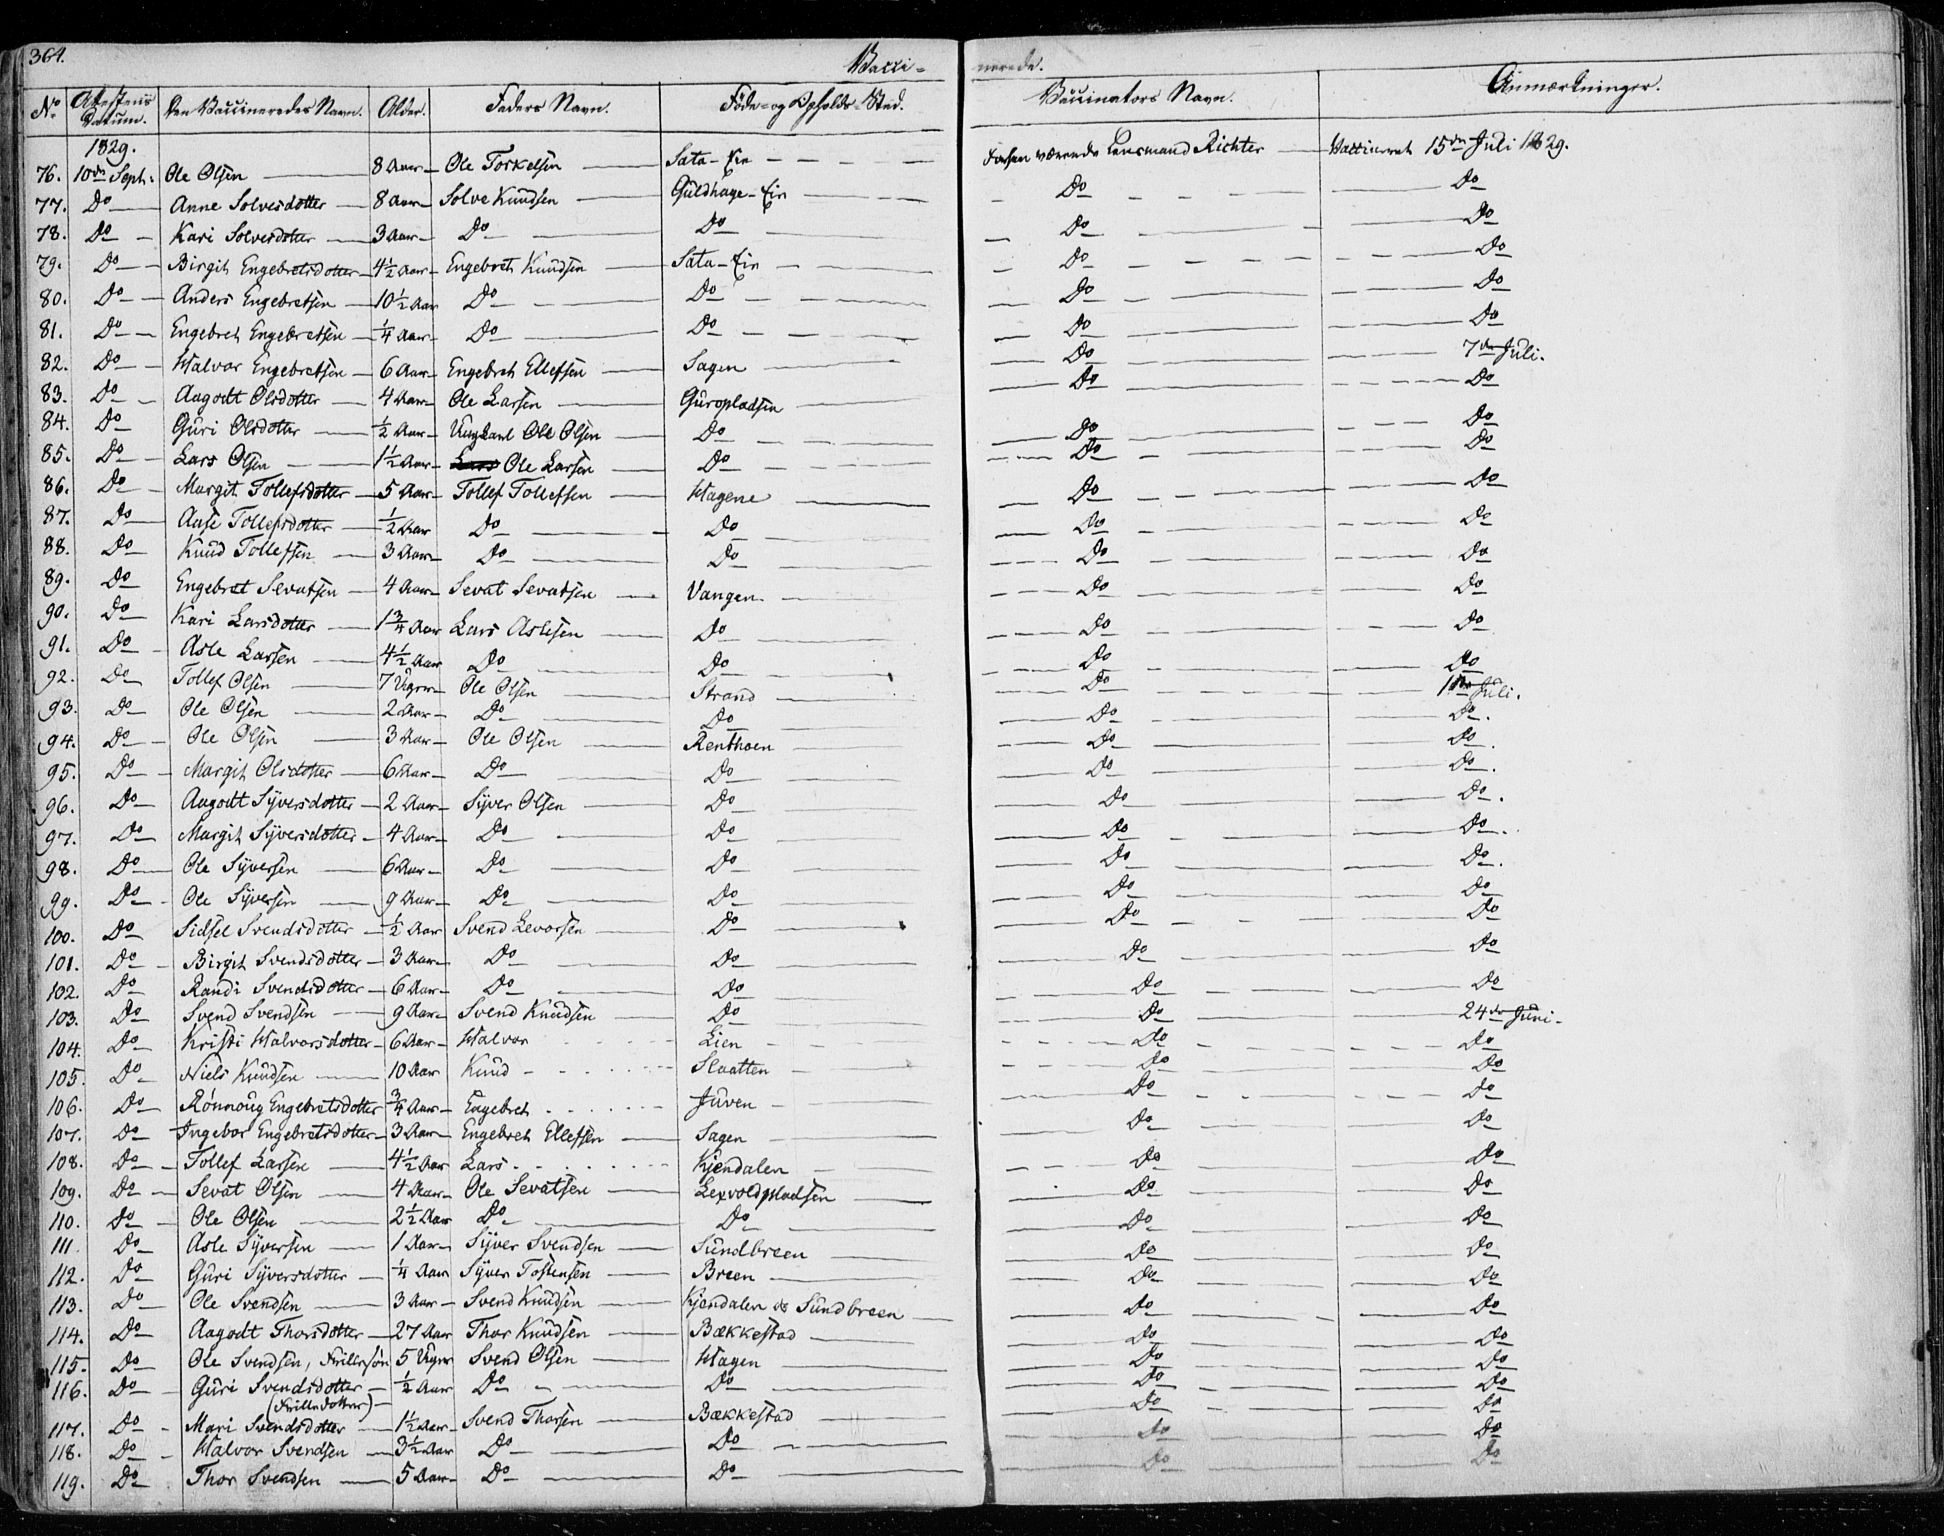 364. Vacci- nerede.
No. Attestens Datum. Den Vaccineredes Navn. Alder. Faders Navn. Føde- og Opholds-Sted. Vaccinators Navn. Anmærkninger.
1829.
76. 10de Sept. Ole Olsen 8 Aar Ole Torkelsen Sata-Eie Lensmand Richter Vaccineret 15de Juli 1829.
77. Do Anne Solvesdotter 8 Aar Solve Knudsen Guldhage-Eie Do Do
78. Do Kari Solvesdotter 3 Aar Do Do Do Do
79. Do Birgit Engebretsdotter 4½ Aar Engebret Knudsen Sata-Eie Do Do
80. Do Anders Engebretsen 10½ Aar Do Do Do Do
81. Do Engebret Engebretsen ¼ Aar Do Do Do Do
82. Do Halvor Engebretsen 6 Aar Engebret Ellefsen Sagen Do 7de Juli.
83. Do Aagodt Olsdotter 4 Aar Ole Larsen Guropladsen Do Do
84. Do Guri Olsdotter ½ Aar Ungkarl Ole Olsen Do Do Do
85. Do Lars Olsen 1½ Aar Ole Larsen Do Do Do
86. Do Margit Tollefsdotter 5 Aar Tollef Tollefsen Hagene Do Do
87. Do Aase Tollefsdotter ½ Aar Do Do Do Do
88. Do Knud Tollefsen 3 Aar Do Do Do Do
89. Do Engebret Sevatsen 4 Aar Sevat Sevatsen Vangen Do Do
90. Do Kari Larsdotter 1¾ Aar Lars Aslesen Do Do Do
91. Do Asle Larsen 4½ Aar Do Do Do Do
92. Do Tollef Olsen 7 Uger Ole Olsen Strand Do 1ste Juli.
93. Do Ole Olsen 2 Aar Do Do Do Do.
94. Do Ole Olsen 3 Aar Ole Olsen Renthoen Do Do.
95. Do Margit Olsdotter 6 Aar Do Do Do Do.
96. Do Aagodt Syversdotter 2 Aar Syver Olsen Do Do Do.
97. Do Margit Syversdotter 4 Aar Do Do Do Do.
98. Do Ole Syversen 6 Aar Do Do Do Do.
99. Do Ole Syversen 9 Aar Do Do Do Do
100. Do Sidsel Svendsdotter ½ Aar Svend Levorsen Do Do Do
101. Do Birgit Svendsdotter 3 Aar Do Do Do Do
102. Do Randi Svendsdotter 6 Aar Do Do Do Do
103. Do Svend Svendsen 9 Aar Svend Knudsen Do Do 24de Juni.
104. Do Kristi Halvorsdotter 6 Aar Halvor Lien Do Do
105. Do Niels Knudsen 10 Aar Knud Slaatten Do Do
106. Do Rønnoug Engebretsdotter ¾ Aar Engebret Juven Do Do
107. Do Ingebor Engebretsdotter 3 Aar Engebret Ellefsen Sagen Do Do
108. Do Tollef Larsen 4½ Aar Lars Kjendalen Do Do
109. Do Sevat Olsen 4 Aar Ole Sevatsen Lexvoldpladsen Do Do
110. Do Ole Olsen 2½ Aar Do Do Do Do
111. Do Asle Syversen 1 Aar Syver Svendsen Sundbreen Do Do
112. Do Guri Syversdotter ¼ Aar Syver Tostensen Breen Do Do
113. Do Ole Svendsen 3 Aar Svend Knudsen Kjendalen & Sundbreen Do Do
114. Do Aagodt Thorsdotter 27 Aar Thor Knudsen Bækkestad Do Do
115. Do Ole Svendsen, Frillesøn 5 Uger Svend Olsen Hagen Do Do
116. Do Guri Svendsdotter ½ Aar Do Do Do Do
(Frilledotter)
117. Do Mari Svendsdotter 1½ Aar Svend Thorsen Bækkestad Do Do
118. Do Halvor Svendsen 3½ Aar Do Do Do Do
119. Do Thor Svendsen 5 Aar Do Do Do Do